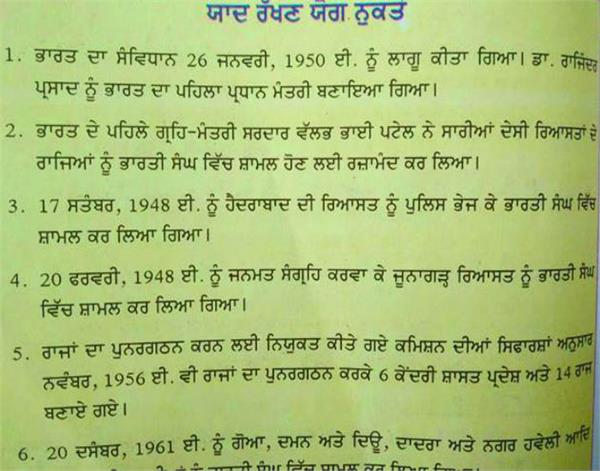 ਯਾਦ ਰੱਖਣ ਯੋਗ ਨੁਕਤੇ
1. ਭਾਰਤ ਦਾ ਸੰਵਿਧਾਨ 26 ਜਨਵਰੀ, 1950 ਈ. ਨੂੰ ਲਾਗੂ ਕੀਤਾ ਗਿਆ। ਡਾ. ਰਾਜਿੰਦਰ
ਪ੍ਰਸਾਦ ਨੂੰ ਭਾਰਤ ਦਾ ਪਹਿਲਾ ਪ੍ਰਧਾਨ ਮੰਤਰੀ ਬਣਾਇਆ ਗਿਆ।
2. ਭਾਰਤ ਦੇ ਪਹਿਲੇ ਗ੍ਰਹਿ-ਮੰਤਰੀ ਸਰਦਾਰ ਵੱਲਭ ਭਾਈ ਪਟੇਲ ਨੇ ਸਾਰੀਆਂ ਦੇਸੀ ਰਿਆਸਤਾਂ ਦੇ
ਰਾਜਿਆਂ ਨੂੰ ਭਾਰਤੀ ਸੰਘ ਵਿੱਚ ਸ਼ਾਮਲ ਹੋਣ ਲਈ ਰਜ਼ਾਮੰਦ ਕਰ ਲਿਆ।
3. 17 ਸਤੰਬਰ, 1948 ਈ. ਨੂੰ ਹੈਦਰਾਬਾਦ ਦੀ ਰਿਆਸਤ ਨੂੰ ਪੁਲਿਸ ਭੇਜ ਕੇ ਭਾਰਤੀ ਸੰਘ ਵਿੱਚ
ਸ਼ਾਮਲ ਕਰ ਲਿਆ ਗਿਆ।
4. 20 ਫਰਵਰੀ, 1948 ਈ. ਨੂੰ ਜਨਮਤ ਸੰਗ੍ਰਹਿ ਕਰਵਾ ਕੇ ਜੂਨਾਗੜ੍ਹ ਰਿਆਸਤ ਨੂੰ ਭਾਰਤੀ ਸੰਘ
ਵਿੱਚ ਸ਼ਾਮਲ ਕਰ ਲਿਆ ਗਿਆ।
5. ਰਾਜਾਂ ਦਾ ਪੁਨਰਗਠਨ ਕਰਨ ਲਈ ਨਿਯੁਕਤ ਕੀਤੇ ਗਏ ਕਮਿਸ਼ਨ ਦੀਆਂ ਸਿਫਾਰਸ਼ਾਂ ਅਨੁਸਾਰ
ਨਵੰਬਰ, 1956 ਈ. ਵੀ ਰਾਜਾਂ ਦਾ ਪੁਨਰਗਠਨ ਕਰਕੇ 6 ਕੇਂਦਰੀ ਸ਼ਾਸਤ ਪ੍ਰਦੇਸ਼ ਅਤੇ 14 ਰਾਜ
ਬਣਾਏ ਗਏ।
6. 20 ਦਸੰਬਰ, 1961 ਈ. ਨੂੰ ਗੋਆ, ਦਮਨ ਅਤੇ ਦਿਊ, ਦਾਦਰਾ ਅਤੇ ਨਗਰ ਹਵੇਲੀ ਆਦਿ
ਨੂੰ ਭਾਰਤੀ ਸੰਘ ਵਿੱਚ ਸ਼ਾਮਲ ਕਰ ਲਿਆ ਗਿਆ।